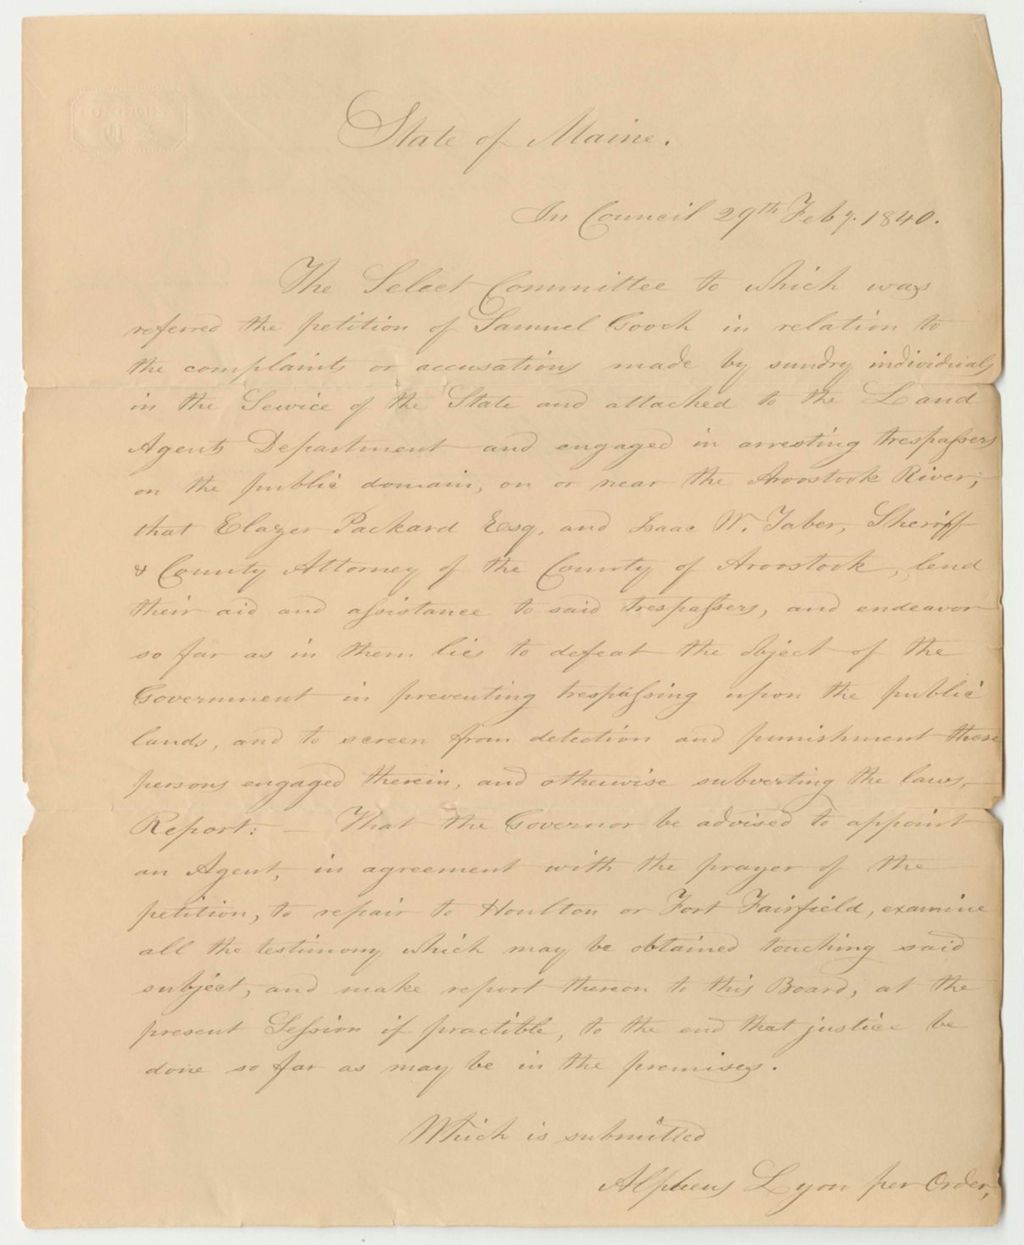 State of Maine.
In Council 29th Feby. 1840.
The Select Committee to which was
referred the petition of Samuel Gooch in relation to
the complaints or accusations made by sundry individuals
in the Service of the State and attached to the Land
Agents Department and engaged in arresting trespassers
on the public domain, on or near the Aroostook River;
that Elazer Packard Esq. and Isaac W. Taber, Sheriff
& County Attorney of the County of Aroostook, lend
their aid and assistance to said trespassers, and endeavor
so far as in them lies to defeat the object of the
Government in preventing trespassing upon the public
lands, and to screen from detection and punishment those
persons engaged therein, and otherwise subverting the laws,
Report: — That the Governor be advised to appoint
an Agent, in agreement with the prayer of the
petition, to repair to Houlton or Fort Fairfield, examine
all the testimony which may be obtained touching said
subject, and make report thereon to this Board, at the
present Session if practible, to the end that justice be
done so far as may be in the premises.
Which is submitted
Alpheus Lyon per Order,